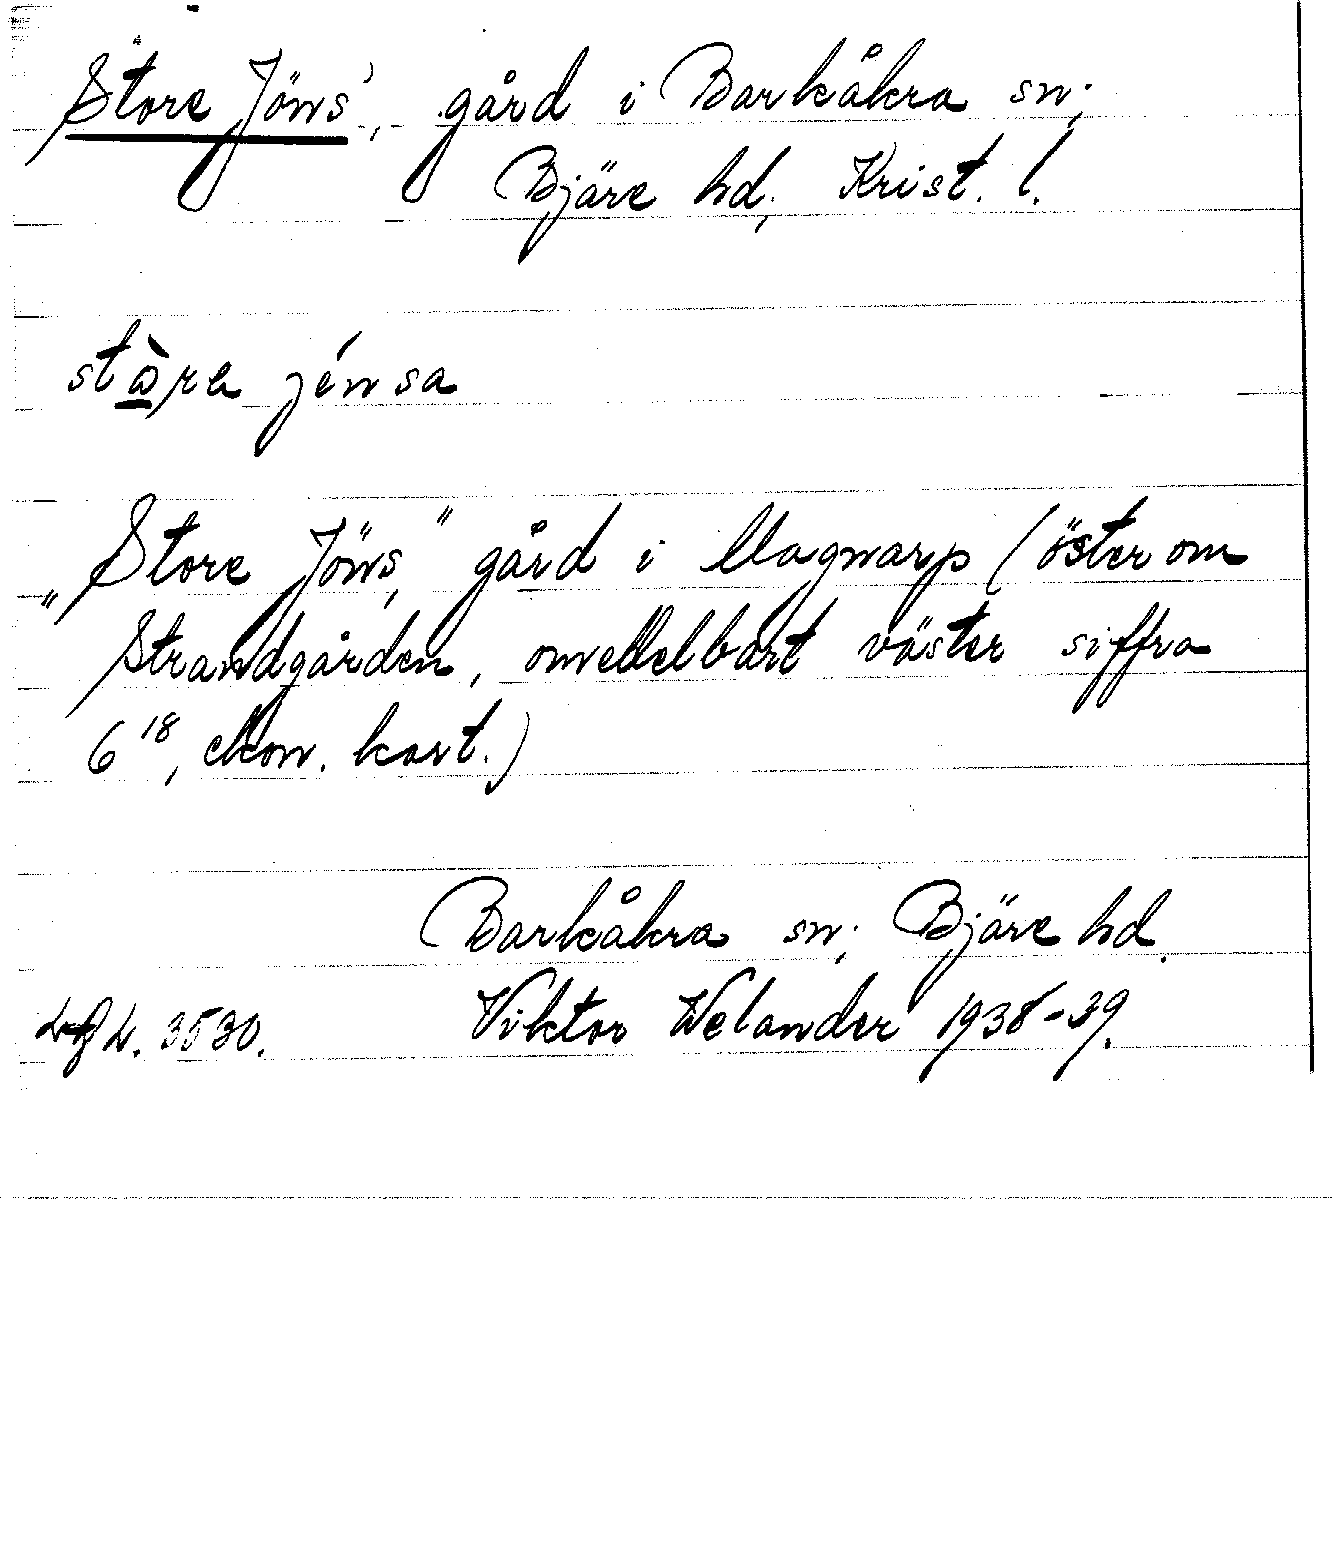 Store Jöns', gård i Barkåkra sn;
Bjäre hd, Krist. l.
stòre jénsa
"Store Jöns," gård i Magnarp (öster om
Strandgården, omedelbart väster siffra
6¹⁸, ekon. kart.)
Barkåkra sn; Bjäre hd.
Viktor Welander 1938-39.
3530.